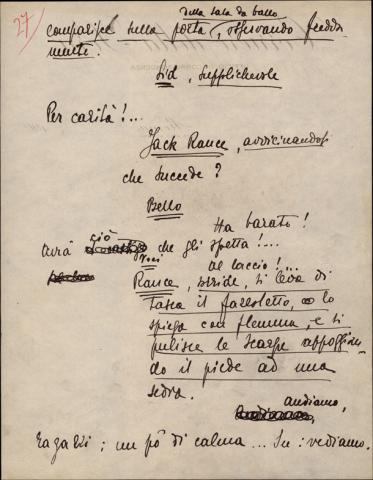 27
della sala da ballo
comparisce sulla porta, osservando fredda
mente.
Sid, supplichevole
Per carità!...
Jack Rance, avvicinandosi
che succede?
Bello
Ha barato!
Avrà ciò che gli spetta!...
voci
Al laccio!...
Rance, sorride, si leva di
tasca il fazzoletto, lo
spiega con flemma, e si
pulisce le scarpe appoggian
do il piede ad una
sedia.
andiamo,
ragazzi; un pò di calma... Su: vediamo.